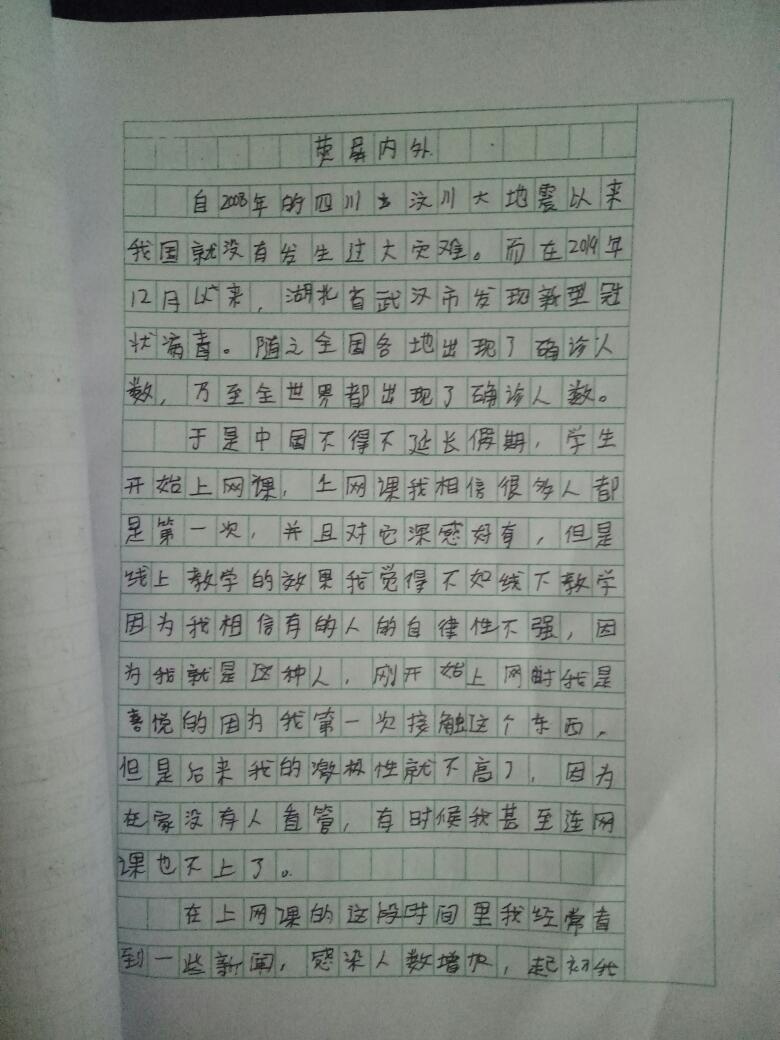 荧屏内外
自2008年的四川汶川大地震以来
我国就没有发生过大灾难。而在2019年
12月以来，湖北省武汉市发现新型冠
状病毒。随之全国各地出现了确诊人
数，乃至全世界都出现了确诊人数。
于是中国不得不延长假期，学生
开始上网课，上网课我相信很多人都
是第一次，并且对它深感好奇，但是
线上教学的效果我觉得不如线下教学
因为我相信有的人的自律性不强，因
为我就是这种人，刚开始上网时我是
喜悦的因为我第一次接触这个东西，
但是后来我的激极性就不高了，因为
在家没有人看管，有时候我甚至连网
课也不上了。
在上网课的这段时间里我经常看
到一些新闻，感染人数增加，起初我